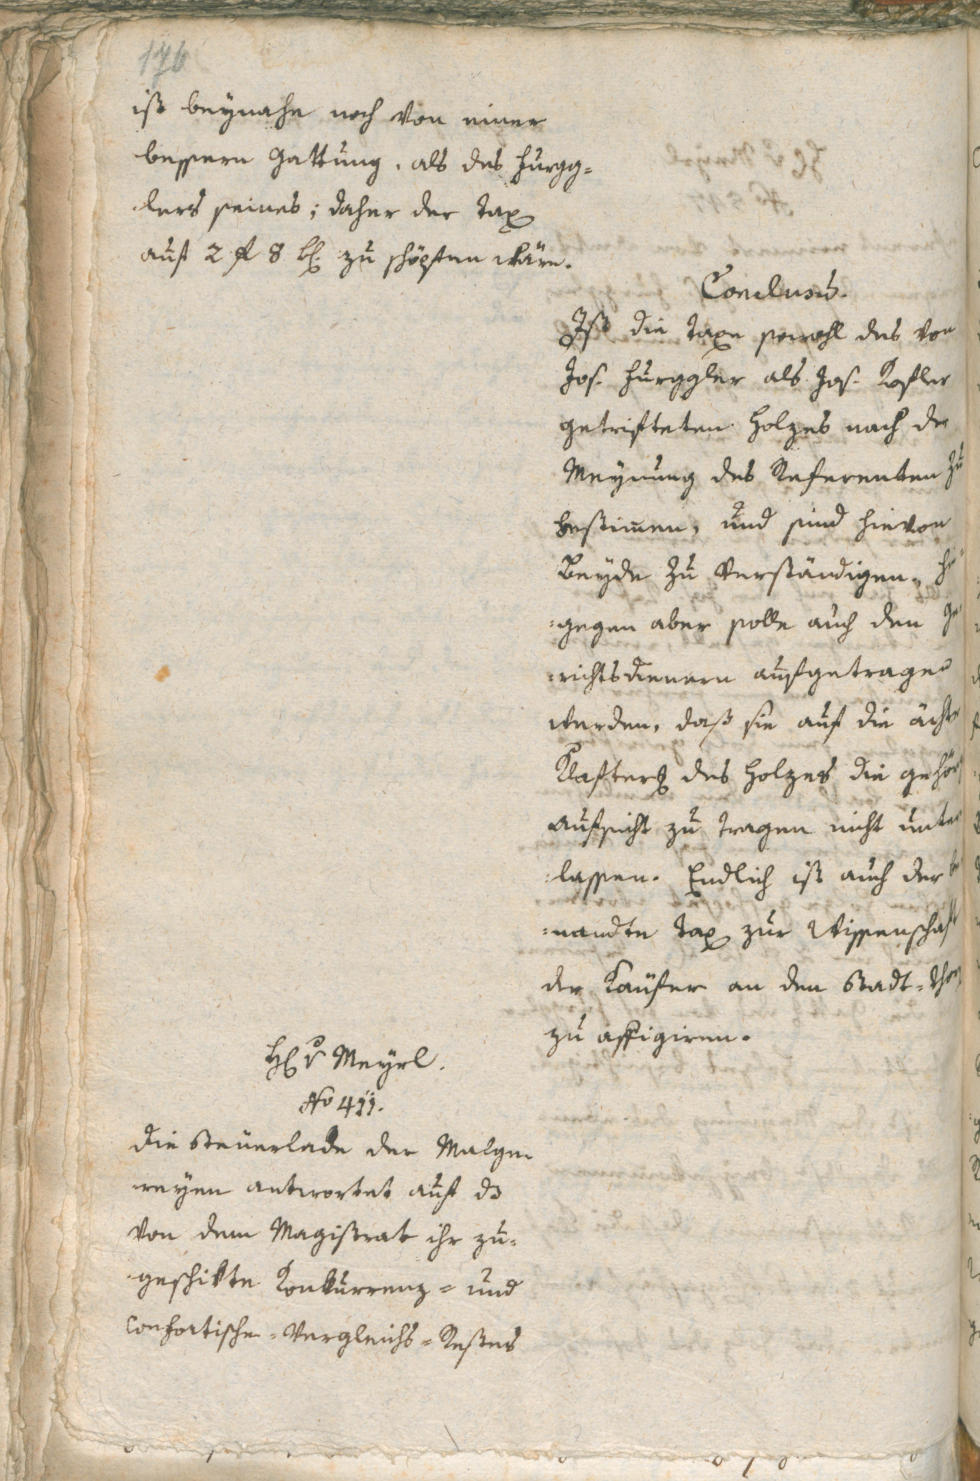 176
ist beynahe noch von einer
bessern Gattung, als des Furgg=
lers seines; daher der Tax
auf 2 f 8 kr zu schöpfen wäre.
Conclusum.
Ist die Taxe sowohl des von
Jos. Furggler als Jos. Kofler
getrifteten Holzes nach der
Meynung des Referenten zu
bestimen, und sind hievon
Beyde zu verständigen,
=gegen aber solle auch den Ge
=richtsdienern aufgetragen
werden, daß sie auf die ächte
Klafters des Holzes die gehör
aufsicht zu tragen nicht unter
=lassen. Endlich ist auch der be
=nandte Tax zur Wissenschaft
der Käufer an den Stadt=Thor
zu affigiren.
H v Meyrl.
No 411.
Die Steuerlade der Malgre
reyen antwortet auf das
von dem Magistrat ihr zu=
geschikte Konkurrenz= und
Consortische=Vergleichs=Restes